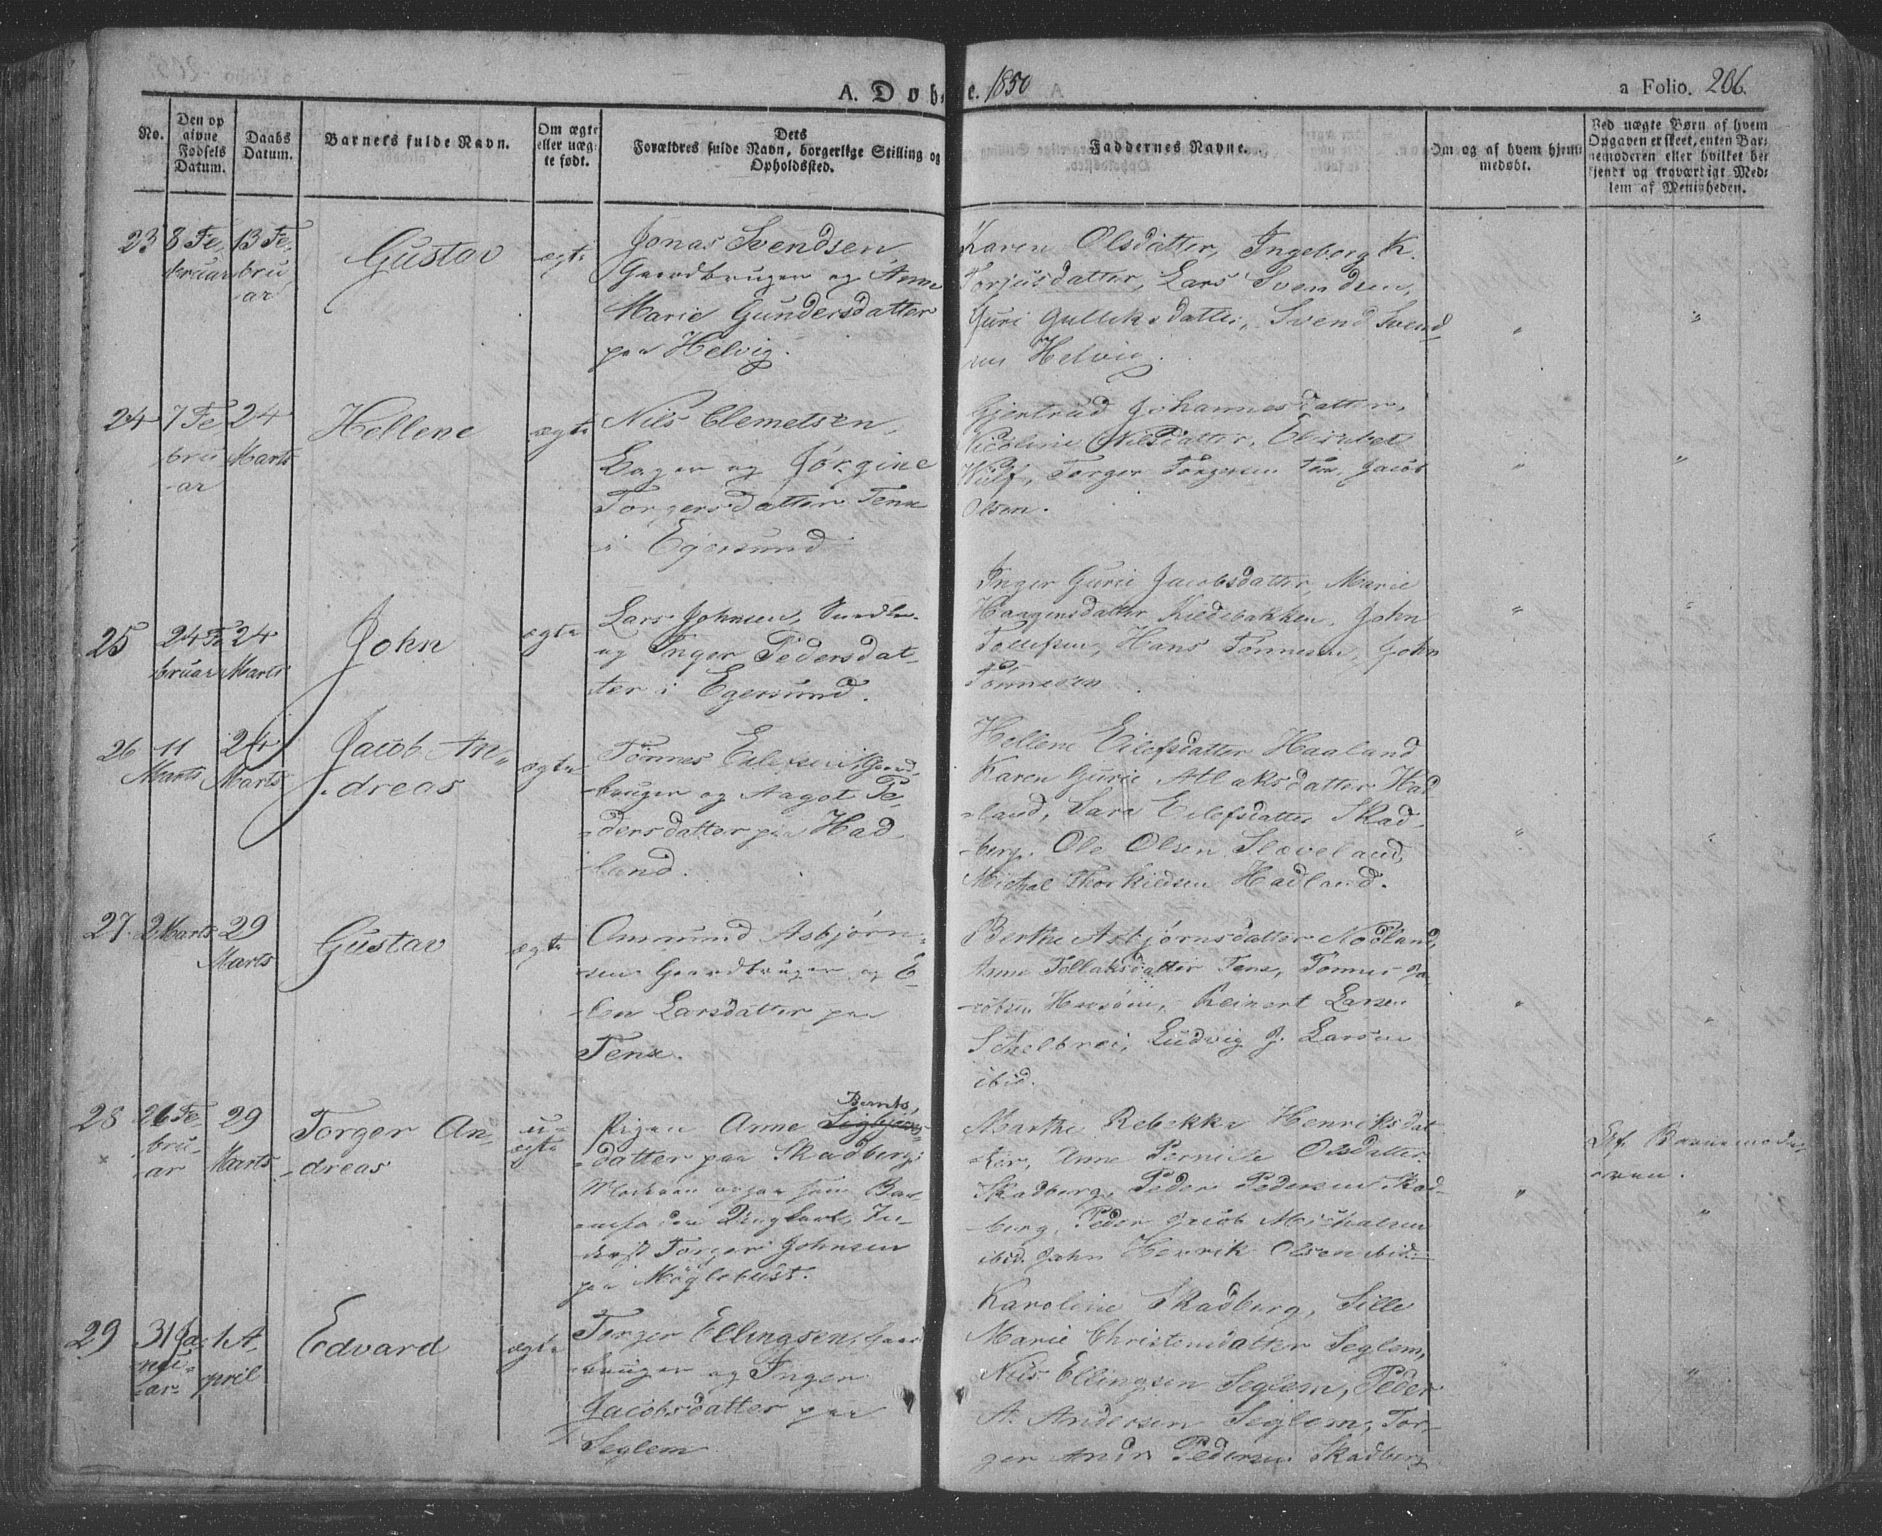 A. Døbte. 1850
a Folio. 206.
No.
Den opgivne Fødsels Datum.
Daabs Datum.
Barnets fulde Navn.
Om ægte eller uægte født.
Dets Forældres fulde Navn, borgerlige Stilling og Opholdssted.
Faddernes Navne.
Om og af hvem hjemmedøbt.
Ved uægte Børn af hvem Opgaven er skeet, enten Barnemoderen eller hvilket beskjendt og troværdigt Medlem af Menigheden.
23
8 Fe
bruar
13 Fe.
bru
ar
Gustav
ægte
Jonas Svendsen,
Gaardbruger og Anne
Marie Gundersdatter
paa Helvig.
Karen Olsdatter, Ingeborg K.
Torjusdatter, Lars Svendsen,
Guri Gulliksdatter, Svend Svend
sen Helvig.
24
7 Fe
bru
ar
24
Marts
Hellene
ægte
Nils Clemetsen,
og Jørgine
Torgersdatter Tenx
i Egersund
Gjertrud Johannesdatter,
Nicoline Nilsdatter, Elisabet
Wulf, Torger Torgersen Tenx, Jacob
Olsen.
25
24 Fe
bruar
24
Marts
John
ægte
Lars Johnsen,
og Inger Pedersdat
ter i Egersund.
Inger Gurie Jacobsdatter, Marie
Haagensdatter Kildebakken, John
Tollefsen, Hans Tønnesen, John
Tønnesen
26
11
Marts
24
Marts
Jacob An
dreas
ægte
Tønnes Eilefsen Gaard
bruger og Aagot Pe
dersdatter paa Had
land.
Hellene Eilefsdatter Haaland
Karen Gurie Atlaksdatter Had
land, Sara Eilefsdatter Skad
berg, Ole Olsen Slæveland,
Michal Thorkildsen Hadland.
27.
2 Marts
29
Marts
Gustav
ægte
Omund Asbjørn
sen Gaardbruger og E
len Larsdatter paa
Tenx.
Berthe Asbjørnsdatter Nodland,
Anne Tollaksdatter Tenx, Tønnes Ja
cobsen, Reinert Larsen
Skelbrei, Ludvig J. Larsen
ibid.
28
26 Fe
bru
ar
29
Marts
Torger An
dreas
u
ægte
Pigen Anne Bernts
datter paa Skadberg.
Moderen som Bar
nefader Ungkarl, In
derst Torger Johnsen
paa Møglebust.
Marthe Rebekka Henriksdat
ter, Anne Pernille Olsdatter
Skadberg, Peder Pedersen Skad
berg, Peder Jacob Michalsen
ibid. John Henrik Olsen ibid.
Barnemode
ren.
29
31 Ja
nu
ar
1 A
pril
Edvard
ægte
Torger Ellingsen, Gaard
bruger og Inger
Jacobsdatter paa
Seglem
Karoline Skadberg, Sille
Marie Christensdatter Seglem,
Nils Ellingsen Seglem, Peder
A. Andersen Seglem, Tor
ger Andr. Pedersen Skadberg